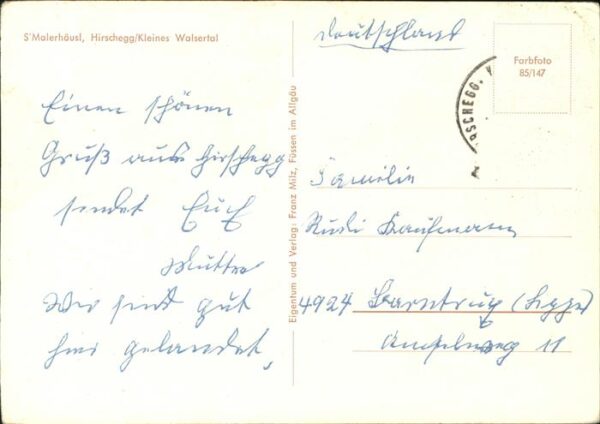 S'Malerhäusl, Hirschegg/Kleines Walsertal
Einen schönen
Gruß aus Hirschegg
sendet Euch
Mutter
Wir sind gut
hier gelandet,
Eigentum und Verlag: Franz Milz, Füssen im Allgäu
Deutschland
RSCHEGG,
Farbfoto
85/147
Familie
Rudi Kaufmann
4924 Barntrup (Lippe)
11